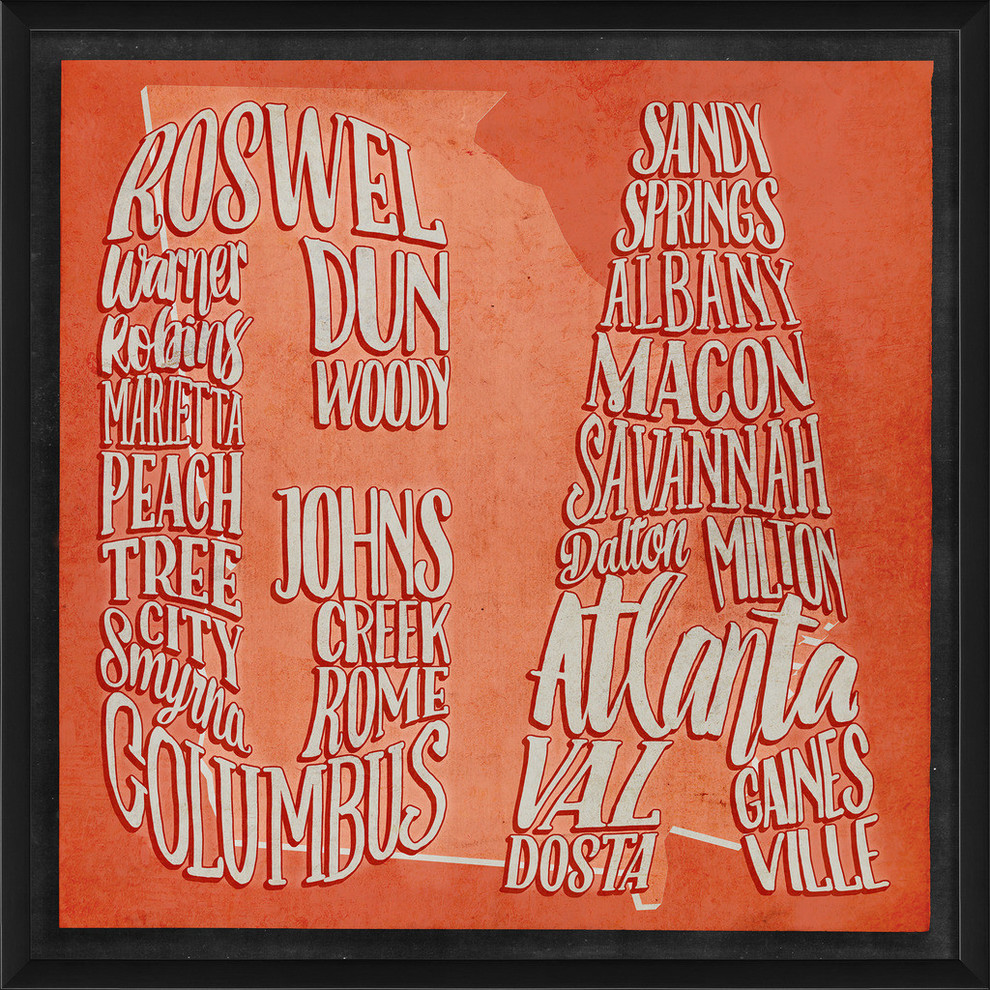 ROSWEL
Warner
Robins
MARIETTA
PEACH
TREE
CITY
Smyrna
COLUMBUS
DUN
WOODY
JOHNS
CREEK
ROME
SANDY
SPRINGS
ALBANY
MACON
SAVANNAH
Dalton MILTON
Atlanta
VAL
DOSTA
GAINES
VILLE